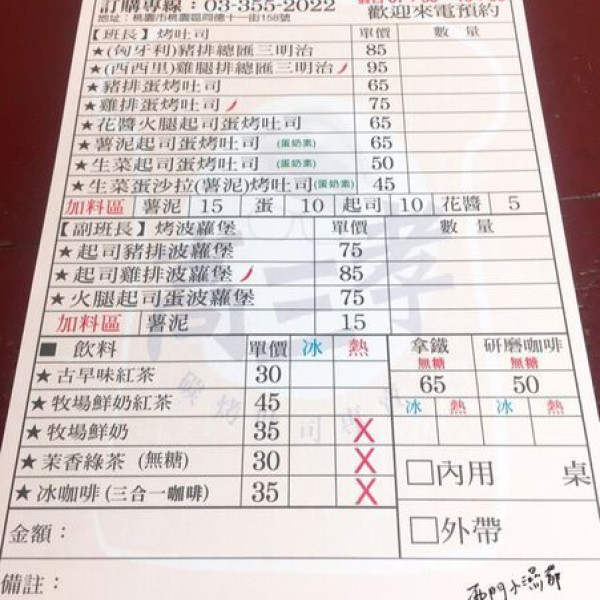 訂購專線：03-355-2022
歡迎來電預約
地址：桃園市桃園區同德十一街158號
【班長】烤吐司 單價 數量
★(匈牙利)豬排總匯三明治 85
★(西西里)雞腿排總匯三明治 95
★豬排蛋烤吐司 65
★雞排蛋烤吐司 75
★花醬火腿起司蛋烤吐司 65
★薯泥起司蛋烤吐司 (蛋奶素) 65
★生菜起司蛋烤吐司 (蛋奶素) 50
★生菜蛋沙拉(薯泥)烤吐司(蛋奶素) 45
加料區 薯泥 15 蛋 10 起司 10 花醬 5
【副班長】烤波蘿堡 單價 數量
★起司豬排波蘿堡 75
★起司雞排波蘿堡 85
★火腿起司蛋波蘿堡 75
加料區 薯泥 15
■ 飲料 單價 冰 熱
★古早味紅茶 30
★牧場鮮奶紅茶 45
★牧場鮮奶 35 X
★茉香綠茶 (無糖) 30 X
★冰咖啡 (三合一咖啡) 35 X
拿鐵 研磨咖啡
無糖 無糖
65 50
冰 熱 冰 熱
□內用 桌
□外帶
金額：
備註：
西門小濕郎